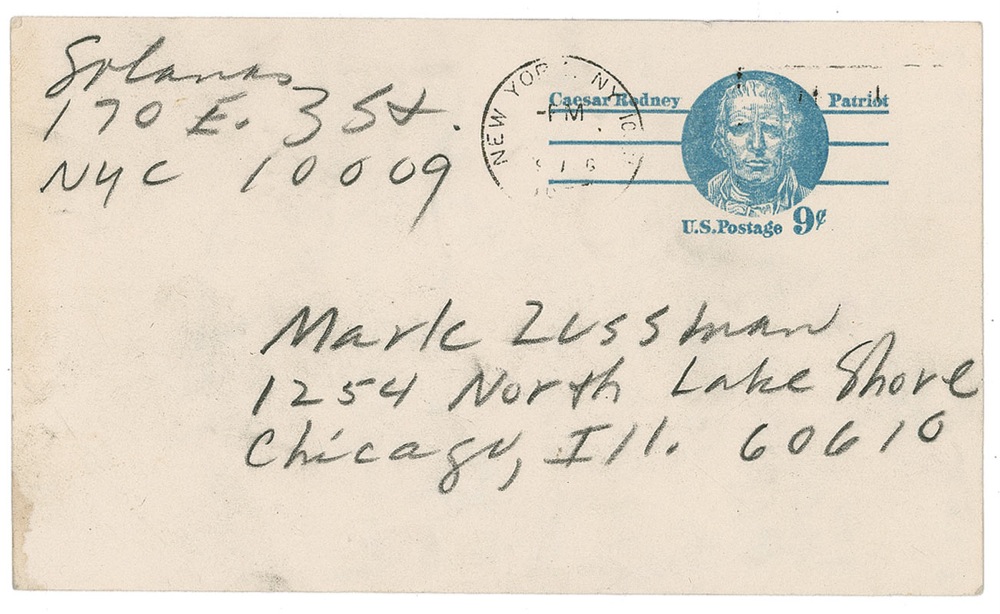 Solanas
170 E. 3 St.
NYC 10009
NEW YORK, NY
PM
Caesar Rodney
Patriot
U.S. Postage 9¢
Mark Zussman
1254 North Lake Shore
Chicago, Ill. 60610